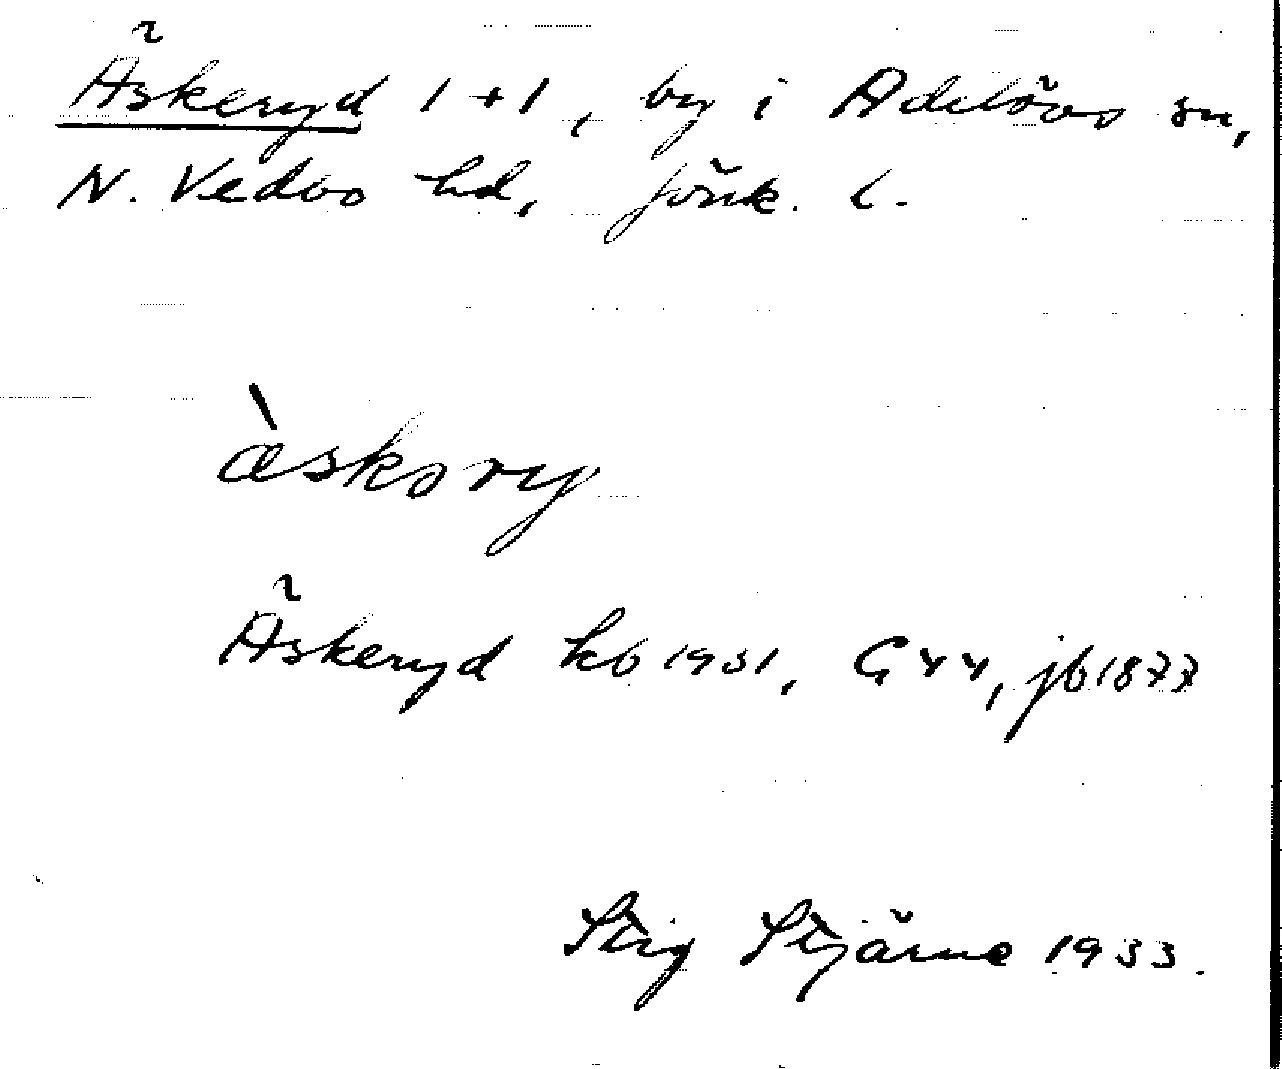 Äskeryd 1+1, by i Adelövs sn,
N. Vedbo hd, Jönk. l.
æ̀skəry
Äskeryd kb 1931, G 44, jb 1877
Stig Stjärne 1933.